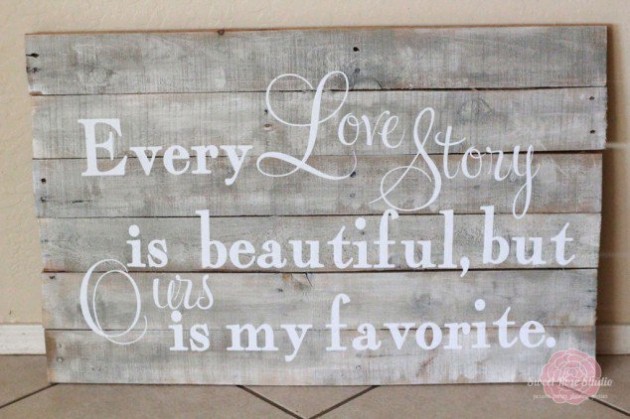 Every Love Story
is beautiful, but
Ours is my favorite.
Sweet Rose Studio